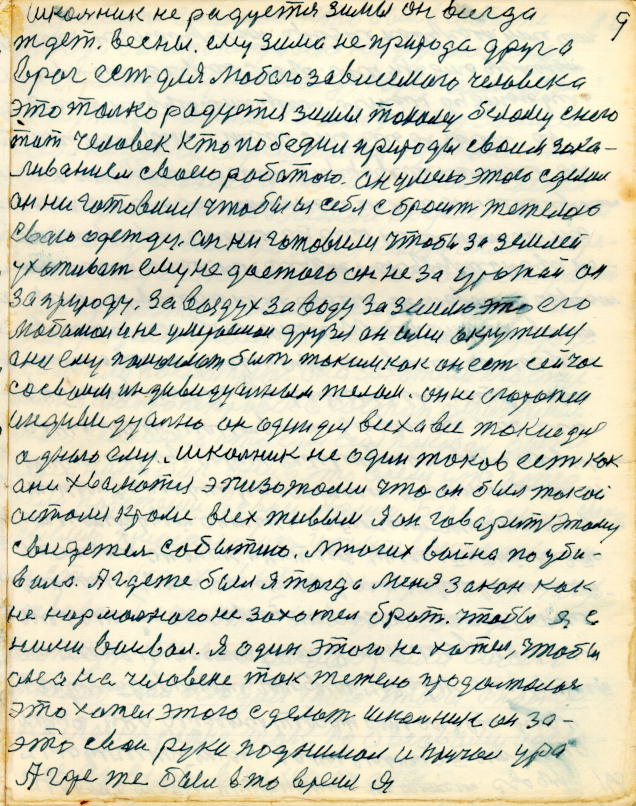 9
школник не радуется зимы он всегда
ждет. весны. ему зима не природа друг а
враг ест для любого зависемого человека
это толко радуется зимы такому белому снего
тот человек кто победил природы своим зака-
ливанием своею работою. он умело этого сделал
он ни готовился чтобы с себя сброшит тежелою
свою одежду. он ни готовили чтобы за землей
ухаживат ему не достого он не за урожай он
за природу. за воздух за воду за землю это его
любамои и не умераемои друзя он ими окружили
ани ему помогают быт таким как он ест сейчас
со своим индивидуалным телом. он не
индивидуално он один для всех а все такие для
одного ему. школник не один таков ест как
ани хвалются этизотоми что он был такой
остался кроме всех живым я он говарит этому
свидетел событию. многих война поуби-
вала. А где же был я тогда меня закон как
не нормалного не захотел брат. чтобы я с
ними воивал. я один этого не хател, чтобы
она на человеке так тежело продолжалас
это хател этого сделат школник он за-
это свои руки поднимал и кричал ура
А где же были в то время я